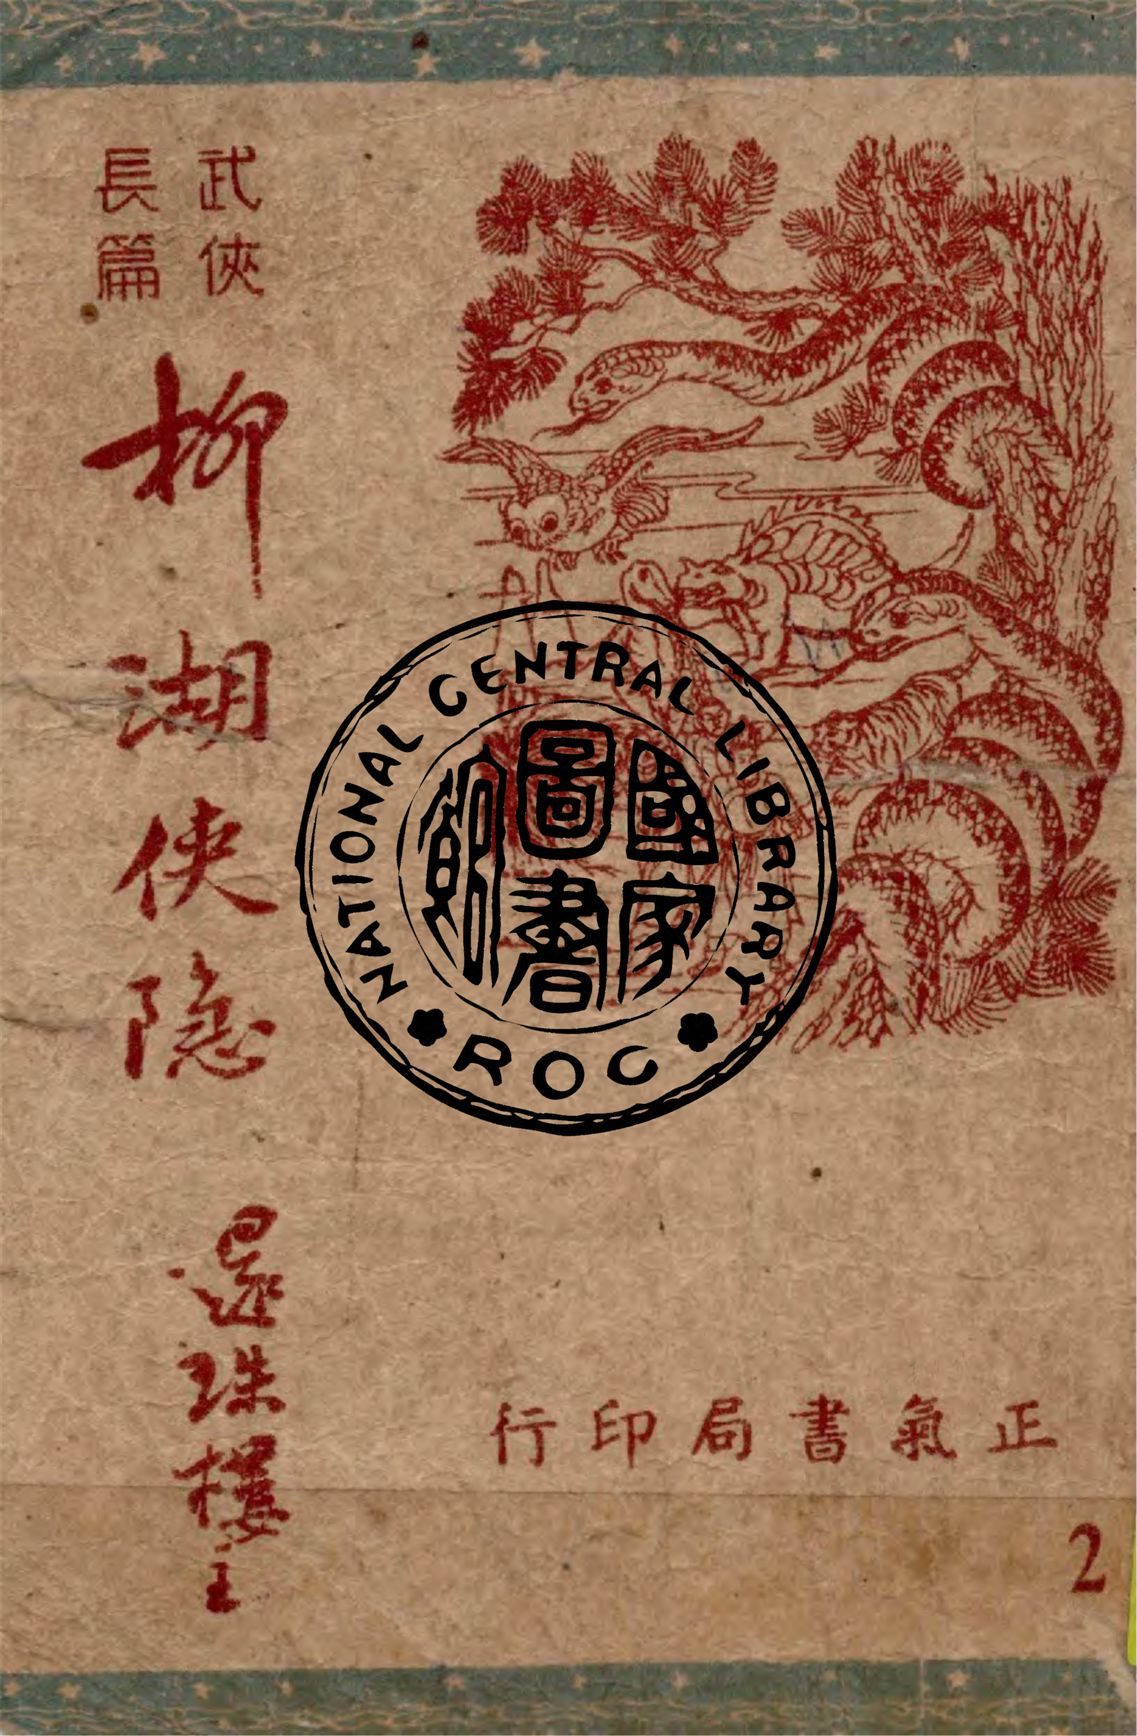 武俠
長篇
柳湖俠隱
還珠樓主
正氣書局印行
2
NATIONAL CENTRAL LIBRARY
ROC
國家
圖書
館